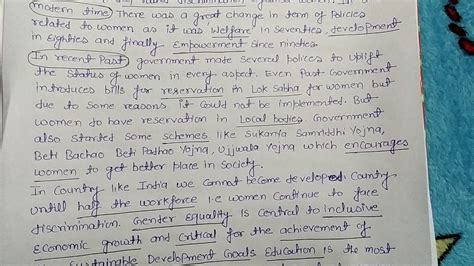 modern time) There was a great change in term of Policies
related to women as it was Welfare in Seventies, development
in Eighties and finally Empowerment Since nineties.
In recent Past, government made Several polices to Uplift
the Status of women in every aspect. Even Past Government
introduces bills for reservation in Lok Sabha for women but
due to Some reasons it Could not be implemented. But
women do have reservation in Local bodies Government
also started Some Schemes like Sukanya Samriddhi Yojna,
Beti Bachao Beti Padhao Yojna, Ujjwala Yojna which encourages
women to get better place in Society.
In Country like India we Cannot become developed Country
untill half the workforce i.e women Continue to face
discrimination. Gender Equality is Central to inclusive
Economic growth and Critical for the achievement of
Sustainable Development Goals Education is the most